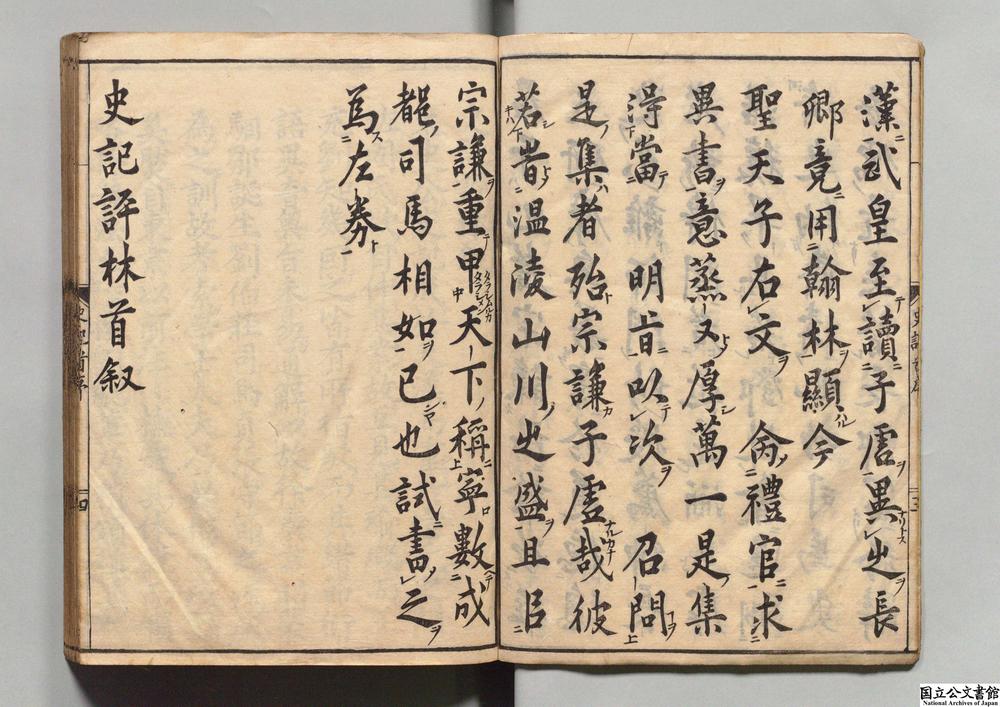 漢武皇至讀子虛異之長
卿竟用翰林顯今
聖天子右文 命禮官求
異書意蒸又厚萬一是集
得當 明旨以次 召問
是集者殆宗謙子虛哉彼
若昔温陵山川之盛且臣
宗謙重甲天下稱寧數成
都司馬相如已也試書之
為左券
史記評林首叙
四
国立公文書館
National Archives of Japan